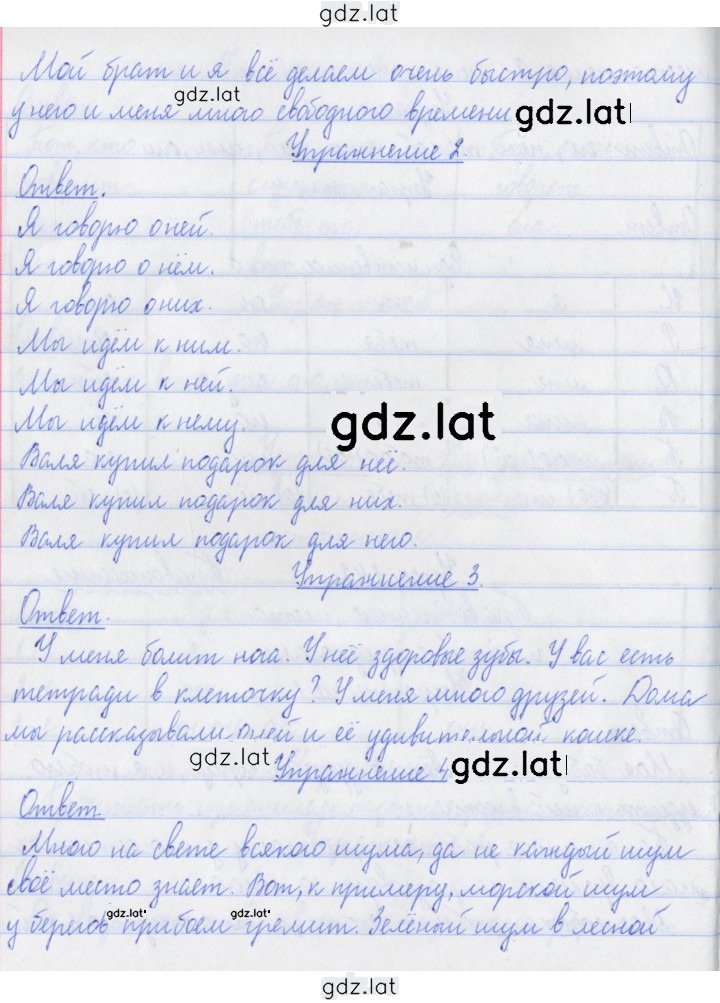 gdz.lat
Мой брат и я всё делаем очень быстро, поэтому
gdz.lat
у него и меня много свободного времени
gdz.lat
Упражнение 2
Ответ.
Я говорю о ней.
Я говорю о нём.
Я говорю о них.
Мы идём к ним.
Мы идём к ней.
Мы идём к нему.
gdz.lat
Валя купил подарок для неё.
Валя купил подарок для них.
Валя купил подарок для него.
Упражнение 3.
Ответ.
У меня болит нога. У неё здоровые зубы. У вас есть
тетради в клеточку? У меня много друзей. Дома
мы рассказывали о ней и её удивительной кошке.
gdz.lat
gdz.lat
Упражнение 4
Ответ.
Много на свете всякого шума, да не каждый шум
своё место знает. Вот, к примеру, морской шум
gdz.lat
gdz.lat
у берегов прибоем гремит. Зелёный шум в лесной
gdz.lat